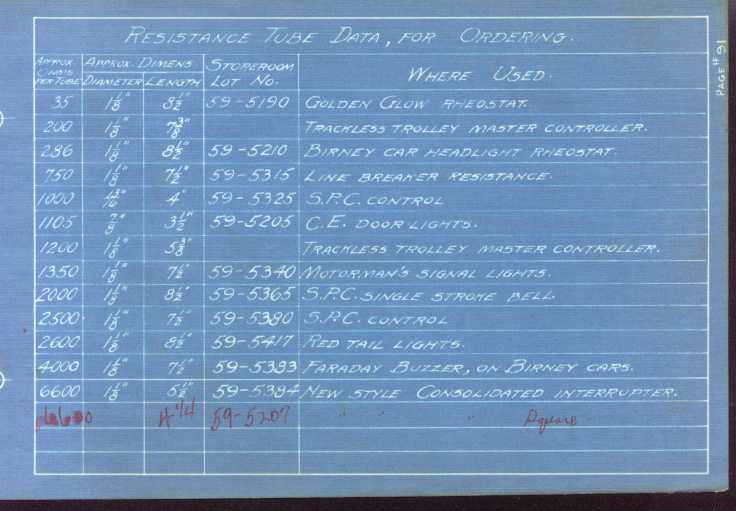 RESISTANCE TUBE DATA, FOR ORDERING.
PAGE #91
APPROX. OHMS PER TUBE APPROX. DIMENS DIAMETER LENGTH STOREROOM LOT NO. WHERE USED.
35 1 1/8" 8 1/2" 59-5190 GOLDEN GLOW RHEOSTAT.
200 1 1/8" 7 3/8" TRACKLESS TROLLEY MASTER CONTROLLER.
286 1 1/8" 8 1/2" 59-5210 BIRNEY CAR HEADLIGHT RHEOSTAT.
750 1 1/8" 7 1/2" 59-5315 LINE BREAKER RESISTANCE.
1000 4" 59-5325 S.P.C. CONTROL
1105 7/8" 3 1/2" 59-5205 C.E. DOOR LIGHTS.
1200 1 1/8" 5 3/8" TRACKLESS TROLLEY MASTER CONTROLLER.
1350 1 1/8" 7 1/2" 59-5340 MOTORMAN'S SIGNAL LIGHTS.
2000 1 1/8" 8 1/2" 59-5365 S.P.C. SINGLE STROKE BELL.
2500 1 1/8" 7 1/2" 59-5380 S.P.C. CONTROL
2600 1 1/8" 8 1/2" 59-5417 RED TAIL LIGHTS.
4000 1 1/8" 7 1/2" 59-5383 FARADAY BUZZER, ON BIRNEY CARS.
6600 1 1/8" 5 1/2" 59-5384 NEW STYLE CONSOLIDATED INTERRUPTER.
4 1/4 59-5207 " " " Square